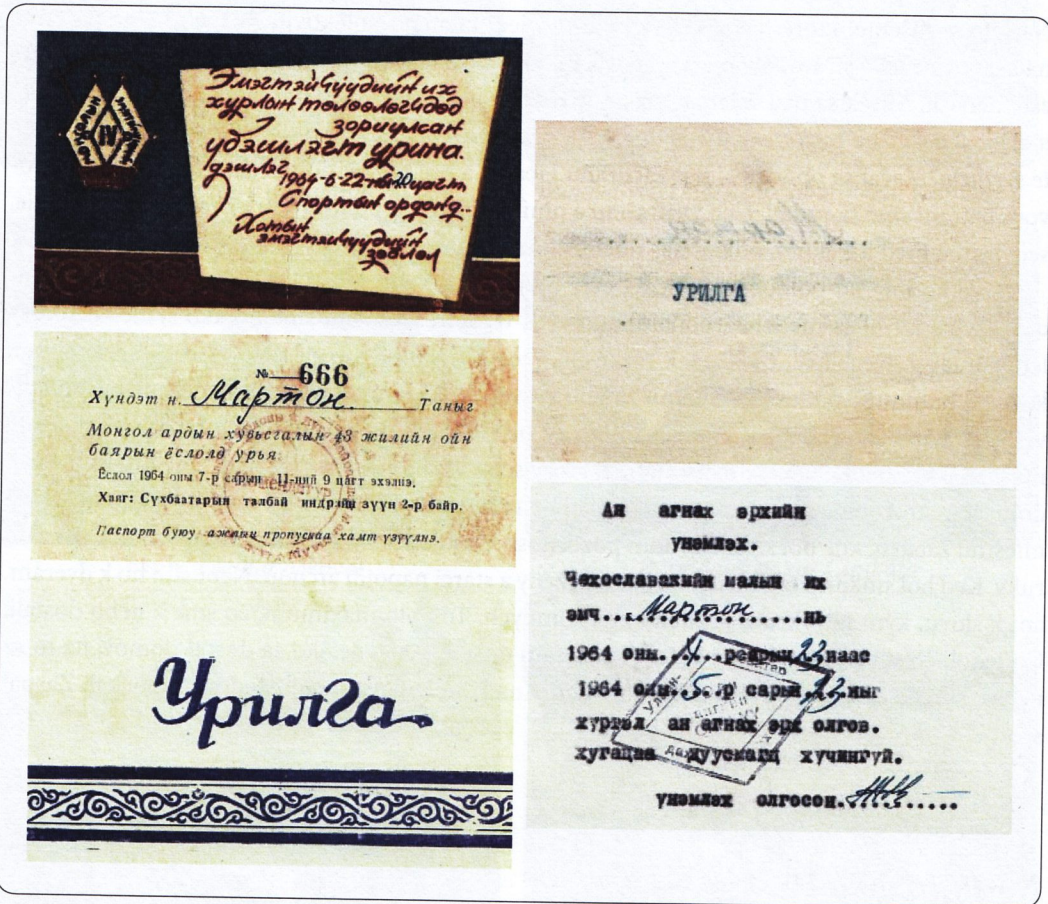 IV
Эмэгтэйчүүдийн их
хурлын төлөөлөгчдөд
зориулсан
үдэшлэгт урина.
Үдэшлэг
1964-6-22-ны 20 цагт
Спортын ордонд..
Хотын
эмэгтэйчүүдийн
зөвлөл
№ 666
Хүндэт н. Мартон. Таныг
Монгол ардын хувьсгалын 43 жилийн ойн
баярын ёслолд урья.
Ёслол 1964 оны 7-р сарын 11-ний 9 цагт эхэлнэ.
Хаяг: Сүхбаатарын талбай индрийн зүүн 2-р байр.
Паспорт буюу ажлын пропускаа хамт үзүүлнэ.
Урилга.
УРИЛГА
Ан агнах эрхийн
үнэмлэх.
Чехославахийн малын их
эмч....Мартон....нь
1964 оны..4...рсарын 23.наас
1964 оны..5..р сарын.23.ныг
хүртэл ан агнах эрх олгов.
хугацаа дуусмагц хүчингүй.
үнэмлэх олгосон.